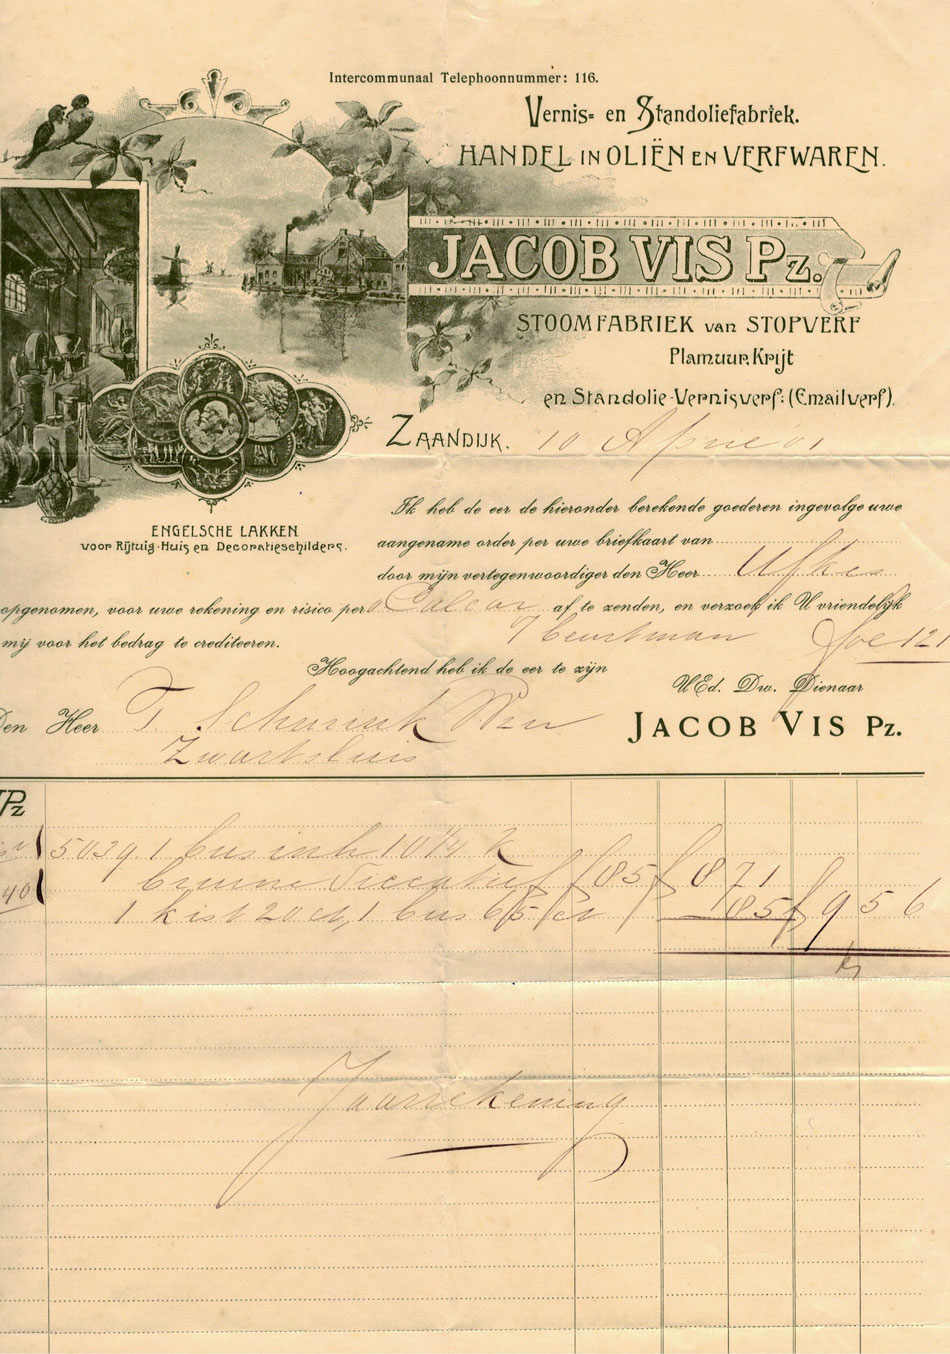 Intercommunaal Telephoonnummer: 116.
Vernis- en Standoliefabriek.
HANDEL IN OLIËN EN VERFWAREN.
JACOB VIS Pz.
STOOMFABRIEK van STOPVERF
Plamuur, Krijt
en Standolie-Vernisverf: (Emailverf).
ZAANDIJK. 10 April 01
ENGELSCHE LAKKEN
voor Rijtuig-Huis en Decoratieschilders.
Ik heb de eer de hieronder berekende goederen ingevolge uwe
aangename order per uwe briefkaart van
door mijn vertegenwoordiger den Heer Ufkes
opgenomen, voor uwe rekening en risico per af te zenden, en verzoek ik U vriendelijk
mij voor het bedrag te crediteeren.
Hoogachtend heb ik de eer te zijn
UEd. Dw. Dienaar
JACOB VIS Pz.
Den Heer T Schuurink Wzn
Zwartsluis
Pz
5039 1 bus inh 10 1/4 K
bruine Siccatief f 85 f 8 71
40
1 kist 20 ct, 1 bus 65 ct 85 f 9 56
Jaarrekening